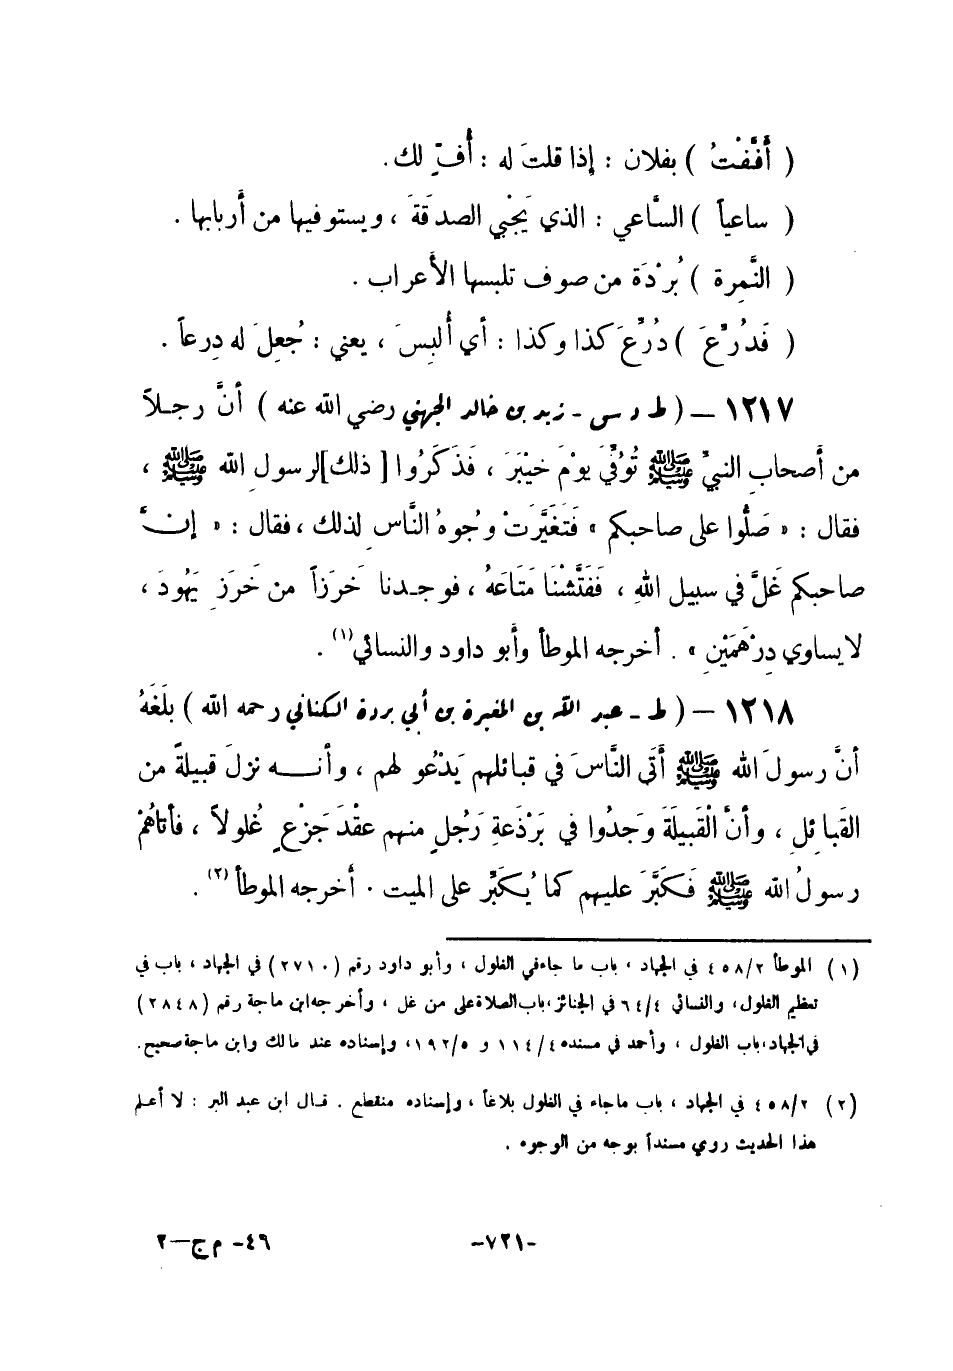 ( أَفَّفْتُ ) بفلان : إذا قلتَ له : أُفٍّ لك .
( ساعياً ) السَّاعي : الذي يَجْبي الصدَقَةَ ، ويستوفيها من أربابها .
( النَّمِرة ) بُرْدَة من صوف تلبسها الأعراب .
( فَدُرِّعَ ) دُرِّعَ كذا وكذا : أي أُلبِسَ ، يعني : جُعِلَ له دِرعاً .
١٢١٧ – ( ط د س - زيد بن خالد الجهني رضي الله عنه ) أنَّ رجـلاً
من أصحابِ النبيِّ ﷺ تُوُفِّيَ يومَ خيْبَرَ ، فَذَكَرُوا [ ذلك ] لرسولِ الله ﷺ ،
فقال : « صَلُّوا على صاحبكم » فَتَغَيَّرَتْ وُجوهُ النَّاسِ لذلك ، فقال : « إنَّ
صاحبكم غَلَّ في سبيل اللهِ ، فَفَتَّشْنَا مَتَاعَهُ ، فوجـدنا خَرَزاً من خَرَزِ يَهُودَ ،
لا يساوي دِرْهَمَيْنِ » . أخرجه الموطأ وأبو داود والنسائي(١) .
١٢١٨ – ( ط - عبد الله بن المغيرة بن أبي بردة الكناني رحمه الله ) بلَغَهُ
أنَّ رسولَ الله ﷺ أتَى النَّاسَ في قبائلهم يَدْعُو لهم ، وأنـــه نزلَ قبيلةً من
القَبائِلِ ، وأنَّ الْقَبيلَةَ وَجدُوا في بَرْذَعةِ رَجُلٍ منهم عقْدَ جَزْعٍ غُلولاً ، فأتاهُمْ
رسولُ الله ﷺ فَكبَّرَ عليهم كما يُكَبِّرُ على الميت . أخرجه الموطأ(٢) .
(١) الموطأ ٤٥٨/٢ في الجهاد ، باب ما جاء في الغلول ، وأبو داود رقم (٢٧١٠) في الجهاد ، باب في
تعظيم الغلول، والنسائي ٦٤/٤ في الجنائز، باب الصلاة على من غل ، وأخرجه ابن ماجة رقم (٢٨٤٨)
في الجهاد، باب الغلول ، وأحمد في مسنده ١١٤/٤ و ١٩٢/٥، وإسناده عند مالك وابن ماجة صحيح.
(٢) ٤٥٨/٢ في الجهاد ، باب ما جاء في الغلول بلاغاً ، وإسناده منقطع . قـال ابن عبد البر : لا أعـلم
هذا الحديث روي مسنداً بوجه من الوجوه .
-٧٢١-
٤٩- م ج—٢